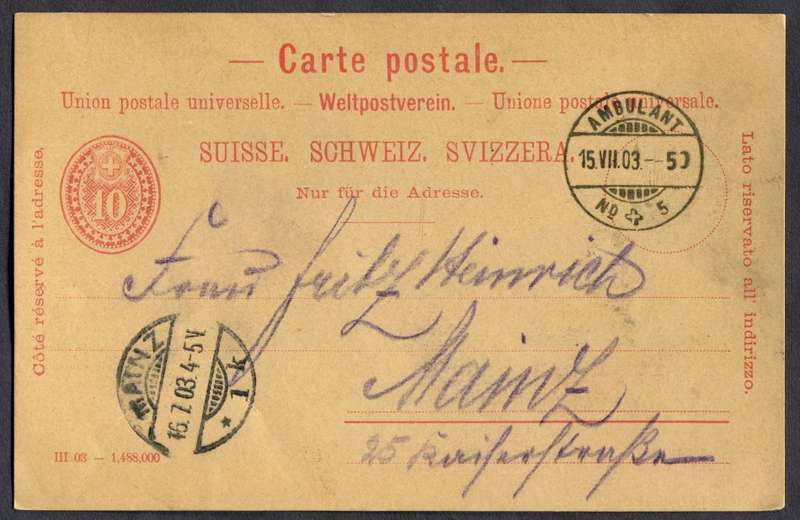 — Carte postale. —
Union postale universelle. — Weltpostverein. — Unione postale universale.
SUISSE. SCHWEIZ. SVIZZERA.
Nur für die Adresse.
10
Côté réservé à l'adresse.
Lato riservato all' indirizzo.
AMBULANT
15.VII.03.—50
No 5
Frau Fritz Heinrich
Mainz
25 Kaiserstraße
MAINZ
16.7.03.4-5V.
* 1 k
III 03 — 1,488,000